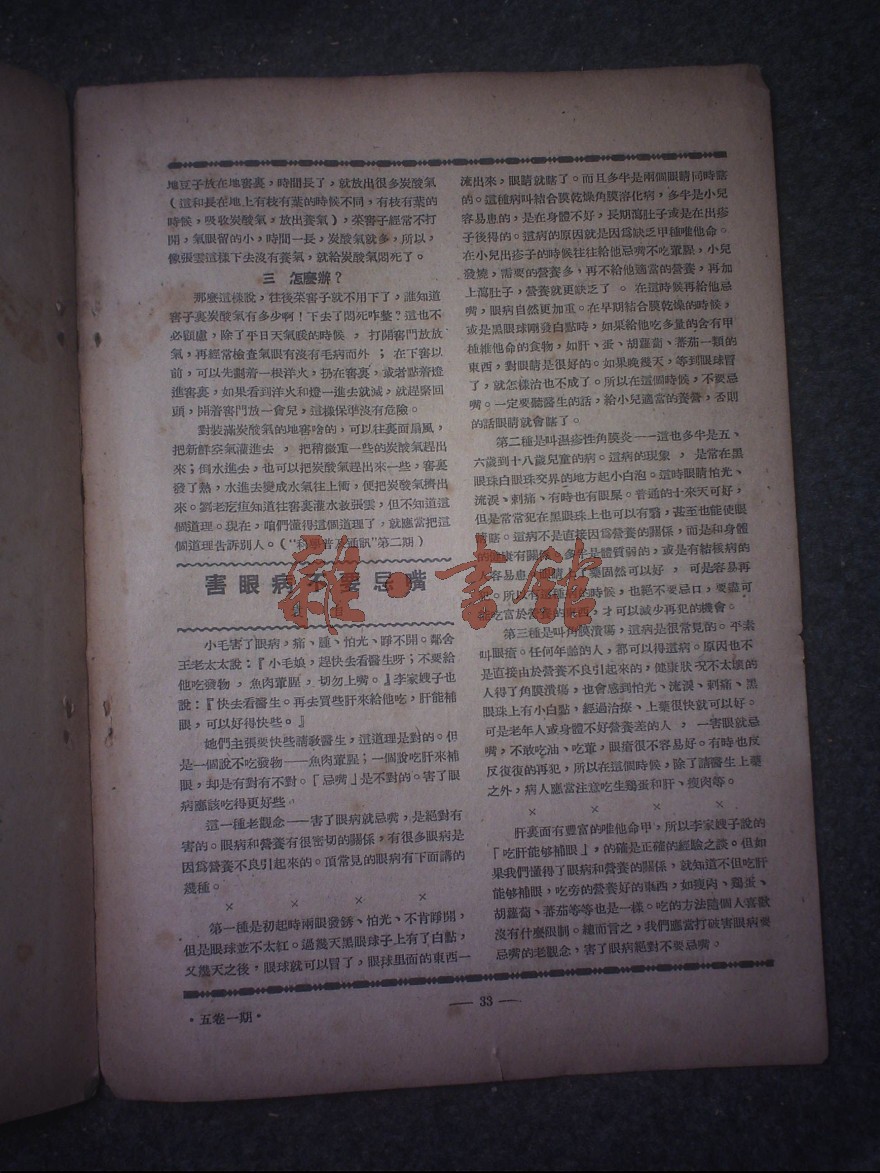 地豆子放在地窖裏，時間長了，就放出很多炭酸氣
（這和長在地上有枝有葉的時候不同，有枝有葉的
時候，吸收炭酸氣，放出養氣），菜窖子經常不打
開，氣眼留的小，時間一長，炭酸氣就多，所以，
像張雲這樣下去沒有養氣，就給炭酸氣悶死了。
三　怎麼辦？
那麼這樣說，往後菜窖子就不用下了，誰知道
窖子裏炭酸氣有多少啊！下去了悶死咋整？這也不
必顧慮，除了平日天氣暖的時候，打開窖門放放
氣，再經常檢查氣眼有沒有毛病而外；在下窖以
前，可以先劃着一根洋火，扔在窖裏，或者點着燈
進窖裏，如果看到洋火和燈一進去就滅，就趕緊回
頭，開着窖門放一會兒，這樣保準沒有危險。
對裝滿炭酸氣的地窖啥的，可以往裏面扇風，
把新鮮空氣灌進去，把稍微重一些的炭酸氣趕出
來；倒水進去，也可以把炭酸氣趕出來一些，窖裏
發了熱，水進去變成水氣往上衝，便把炭酸氣擠出
來。劉老疙疸知道往窖裏灌水救張雲，但不知道這
個道理。現在，咱們懂得這個道理了，就應當把這
個道理告訴別人。（“科學普及通訊”第二期）
害眼病不要忌嘴
小毛害了眼病，痛、腫、怕光、睜不開。鄰舍
王老太太說：『小毛娘，趕快去看醫生呀；不要給
他吃發物，魚肉葷腥，切勿上嘴。』李家嫂子也
說：『快去看醫生。再去買些肝來給他吃，肝能補
眼，可以好得快些。』
她們主張要快些請教醫生，這道理是對的。但
是一個說不吃發物——魚肉葷腥；一個說吃肝來補
眼，却是有對有不對。「忌嘴」是不對的。害了眼
病應該吃得更好些
這一種老觀念——害了眼病就忌嘴，是絕對有
害的。眼病和營養有很密切的關係，有很多眼病是
因爲營養不良引起來的。頂常見的眼病有下面講的
幾種。
×　×　×　×
第一種是初起時兩眼發銹、怕光、不肯睜開，
但是眼球並不太紅。過幾天黑眼球子上有了白點，
又幾天之後，眼球就可以冒了，眼球里面的東西一
流出來，眼睛就瞎了。而且多半是兩個眼睛同時瞎
的。這種病叫結合膜乾燥角膜溶化病，多半是小兒
容易患的，是在身體不好，長期瀉肚子或是在出疹
子後得的。這病的原因就是因爲缺乏甲種唯他命。
在小兒出疹子的時候往往給他忌嘴不吃葷腥，小兒
發燒，需要的營養多，再不給他適當的營養，再加
上瀉肚子，營養就更缺乏了。在這時候再給他忌
嘴，眼病自然更加重。在早期結合膜乾燥的時候，
或是黑眼球剛發白點時，如果給他吃多量的含有甲
種維他命的食物，如肝、蛋、胡蘿蔔、蕃茄一類的
東西，對眼睛是很好的。如果晚幾天，等到眼球冒
了，就怎樣治也不成了。所以在這個時候，不要忌
嘴。一定要聽醫生的話，給小兒適當的營養，否則
的話眼睛就會瞎了。
第二種是叫濕疹性角膜炎——這也多半是五、
六歲到十八歲兒童的病。這病的現象，是常在黑
眼珠白眼珠交界的地方起小白泡。這時眼睛怕光、
流淚、刺痛、有時也有眼屎。普通的十來天可好，
但是常常犯在黑眼珠上也可以有翳，甚至也能使眼
睛瞎。這病不是直接因爲營養的關係，而是和身體
的健康有關係，多半是體質弱的，或是有結核病的
人容易患。眼睛上了藥固然可以好，可是容易再
犯。所以有這種病的時候，也絕不要忌口，要儘可
能吃富於營養的東西，才可以減少再犯的機會。
第三種是叫角膜潰瘍，這病是很常見的。平素
叫眼瘡。任何年齡的人，都可以得這病。原因也不
是直接由於營養不良引起來的，健康狀況不太壞的
人得了角膜潰瘍，也會感到怕光、流淚、刺痛、黑
眼珠上有小白點，經過治療、上藥很快就可以好。
可是老年人或身體不好營養差的人，一害眼就忌
嘴，不敢吃油、吃葷，眼瘡很不容易好。有時也反
反復復的再犯，所以在這個時候，除了請醫生上藥
之外，病人應當注意吃生鷄蛋和肝、瘦肉等。
×　×　×　×
肝裏面有豐富的唯他命甲，所以李家嫂子說的
「吃肝能够補眼」，的確是正確的經驗之談。但如
果我們懂得了眼病和營養的關係，就知道不但吃肝
能够補眼，吃旁的營養好的東西，如瘦肉、鷄蛋、
胡蘿蔔、蕃茄等等也是一樣。吃的方法隨個人喜歡
沒有什麼限制。總而言之，我們應當打破害眼病要
忌嘴的老觀念，害了眼病絕對不要忌嘴。
— 33 —
·五卷一期·
雜·書館